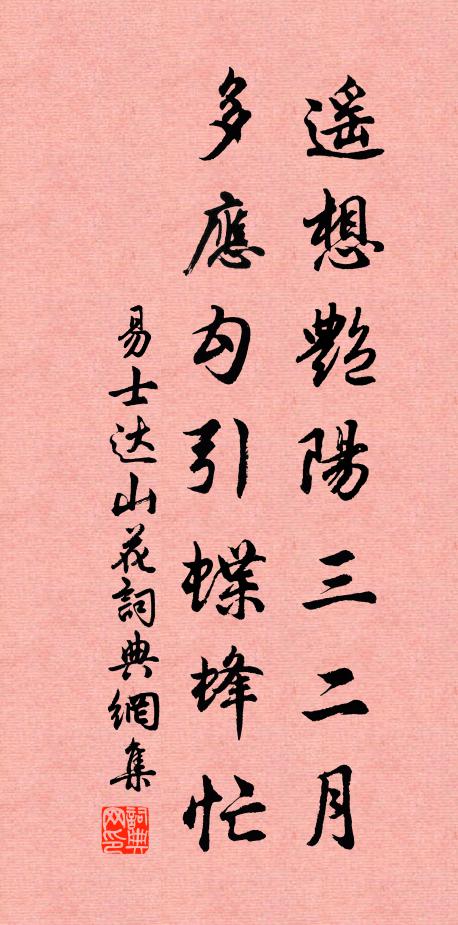 遥想艷陽三二月
多應勾引蝶蜂忙
易士达山花詞典網集
詞典网印